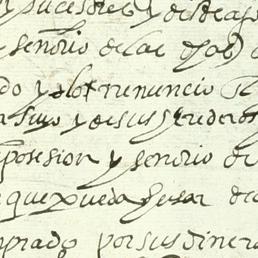 sucesores y desde a
señorio de las
do y los renuncio
suyo y de sus erederos
posesion y señorio de
que pueda usar de
prado por sus dinero